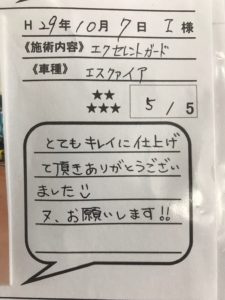 H29年10月7日 I様
《施術内容》エクセレントガード
《車種》エスクァイア
★★
★★★
5/5
とてもキレイに仕上げ
て頂きありがとうござい
ました
又、お願いします!!